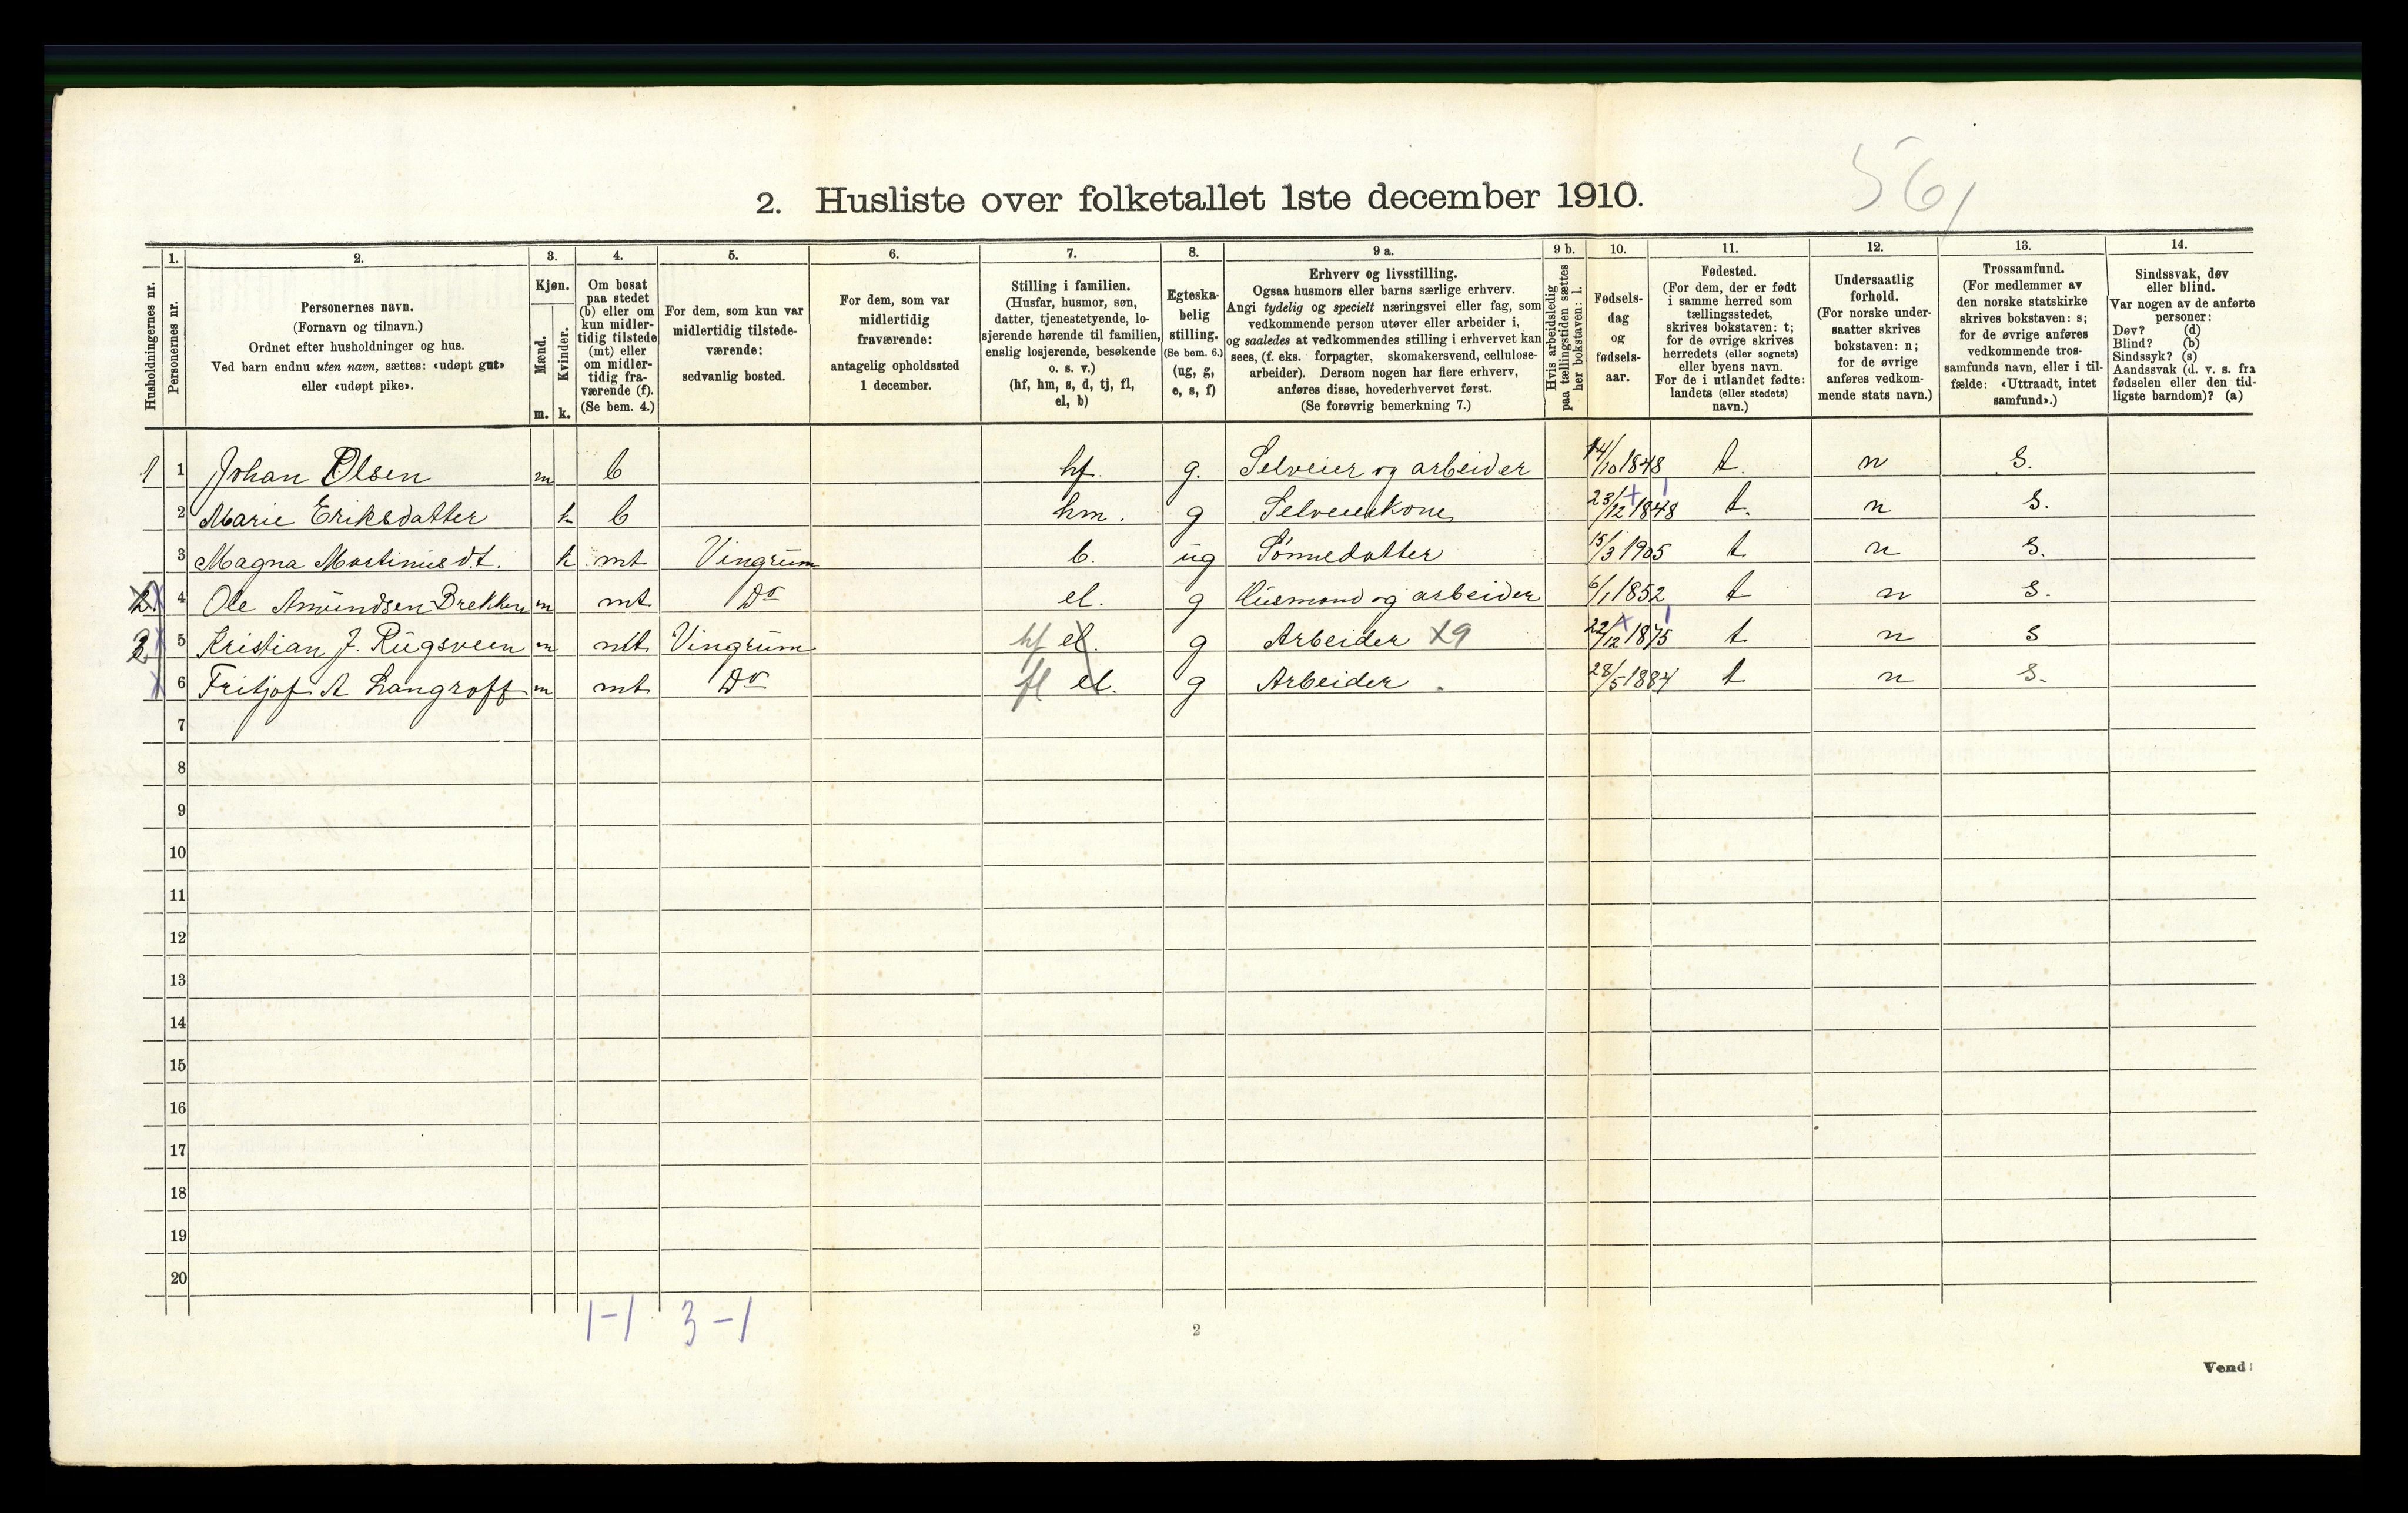 561
2. Husliste over folketallet 1ste december 1910.
Husholdningernes nr.
1.
Personernes nr.
2.
Personernes navn.
(Fornavn og tilnavn.)
Ordnet efter husholdninger og hus.
Ved barn endnu uten navn, sættes: «udøpt gut»
eller «udøpt pike».
3.
Kjøn.
Mænd.
Kvinder.
m. k.
4.
Om bosat
paa stedet
(b) eller om
kun midler-
tidig tilstede
(mt) eller
om midler-
tidig fra-
værende (f).
(Se bem. 4.)
5.
For dem, som kun var
midlertidig tilstede-
værende:
sedvanlig bosted.
6.
For dem, som var
midlertidig
fraværende:
antagelig opholdssted
1 december.
7.
Stilling i familien.
(Husfar, husmor, søn,
datter, tjenestetyende, lo-
sjerende hørende til familien,
enslig losjerende, besøkende
o. s. v.)
(hf, hm, s, d, tj, fl,
el, b)
8.
Egteska-
belig
stilling.
(Se bem. 6.)
(ug, g,
e, s, f)
9 a.
Erhverv og livsstilling.
Ogsaa husmors eller barns særlige erhverv.
Angi tydelig og specielt næringsvei eller fag, som
vedkommende person utøver eller arbeider i,
og saaledes at vedkommendes stilling i erhvervet kan
sees, (f. eks. forpagter, skomakersvend, cellulose-
arbeider). Dersom nogen har flere erhverv,
anføres disse, hovederhvervet først.
(Se forøvrig bemerkning 7.)
9 b.
Hvis arbeidsledig
paa tællingstiden sættes
her bokstaven: l.
10.
Fødsels-
dag
og
fødsels-
aar.
11.
Fødested.
(For dem, der er født
i samme herred som
tællingsstedet,
skrives bokstaven: t;
for de øvrige skrives
herredets (eller sognets)
eller byens navn.
For de i utlandet fødte:
landets (eller stedets)
navn.)
12.
Undersaatlig
forhold.
(For norske under-
saatter skrives
bokstaven: n;
for de øvrige
anføres vedkom-
mende stats navn.)
13.
Trossamfund.
(For medlemmer av
den norske statskirke
skrives bokstaven: s;
for de øvrige anføres
vedkommende tros-
samfunds navn, eller i til-
fælde: «Uttraadt, intet
samfund».)
14.
Sindssvak, døv
eller blind.
Var nogen av de anførte
personer:
Døv? (d)
Blind? (b)
Sindssyk? (s)
Aandssvak (d. v. s. fra
fødselen eller den tid-
ligste barndom)? (a)
1 1 Johan Olsen m b hf. g. Selveier og arbeider 14/10 1848 t. n s.
2 Marie Eriksdatter k b hm. g Selveierkone 23/12 1848 t. n s.
3 Magna Martinusd.t. k mt Vingrum b. ug Sønnedatter 15/3 1905 t n s.
2 4 Ole Amundsen Brekken m mt Do el. g Husmand og arbeider 6/1 1852 t n s.
3 5 Kristian J. Rugsveen m mt Vingrum hf el. g Arbeider X9 22/12 1875 t n s
6 Fritjof A Langroff m mt Do fl el. g Arbeider . 28/5 1884 t n s.
7
8
9
10
11
12
13
14
15
16
17
18
19
20
1-1 3-1
2
Vend!